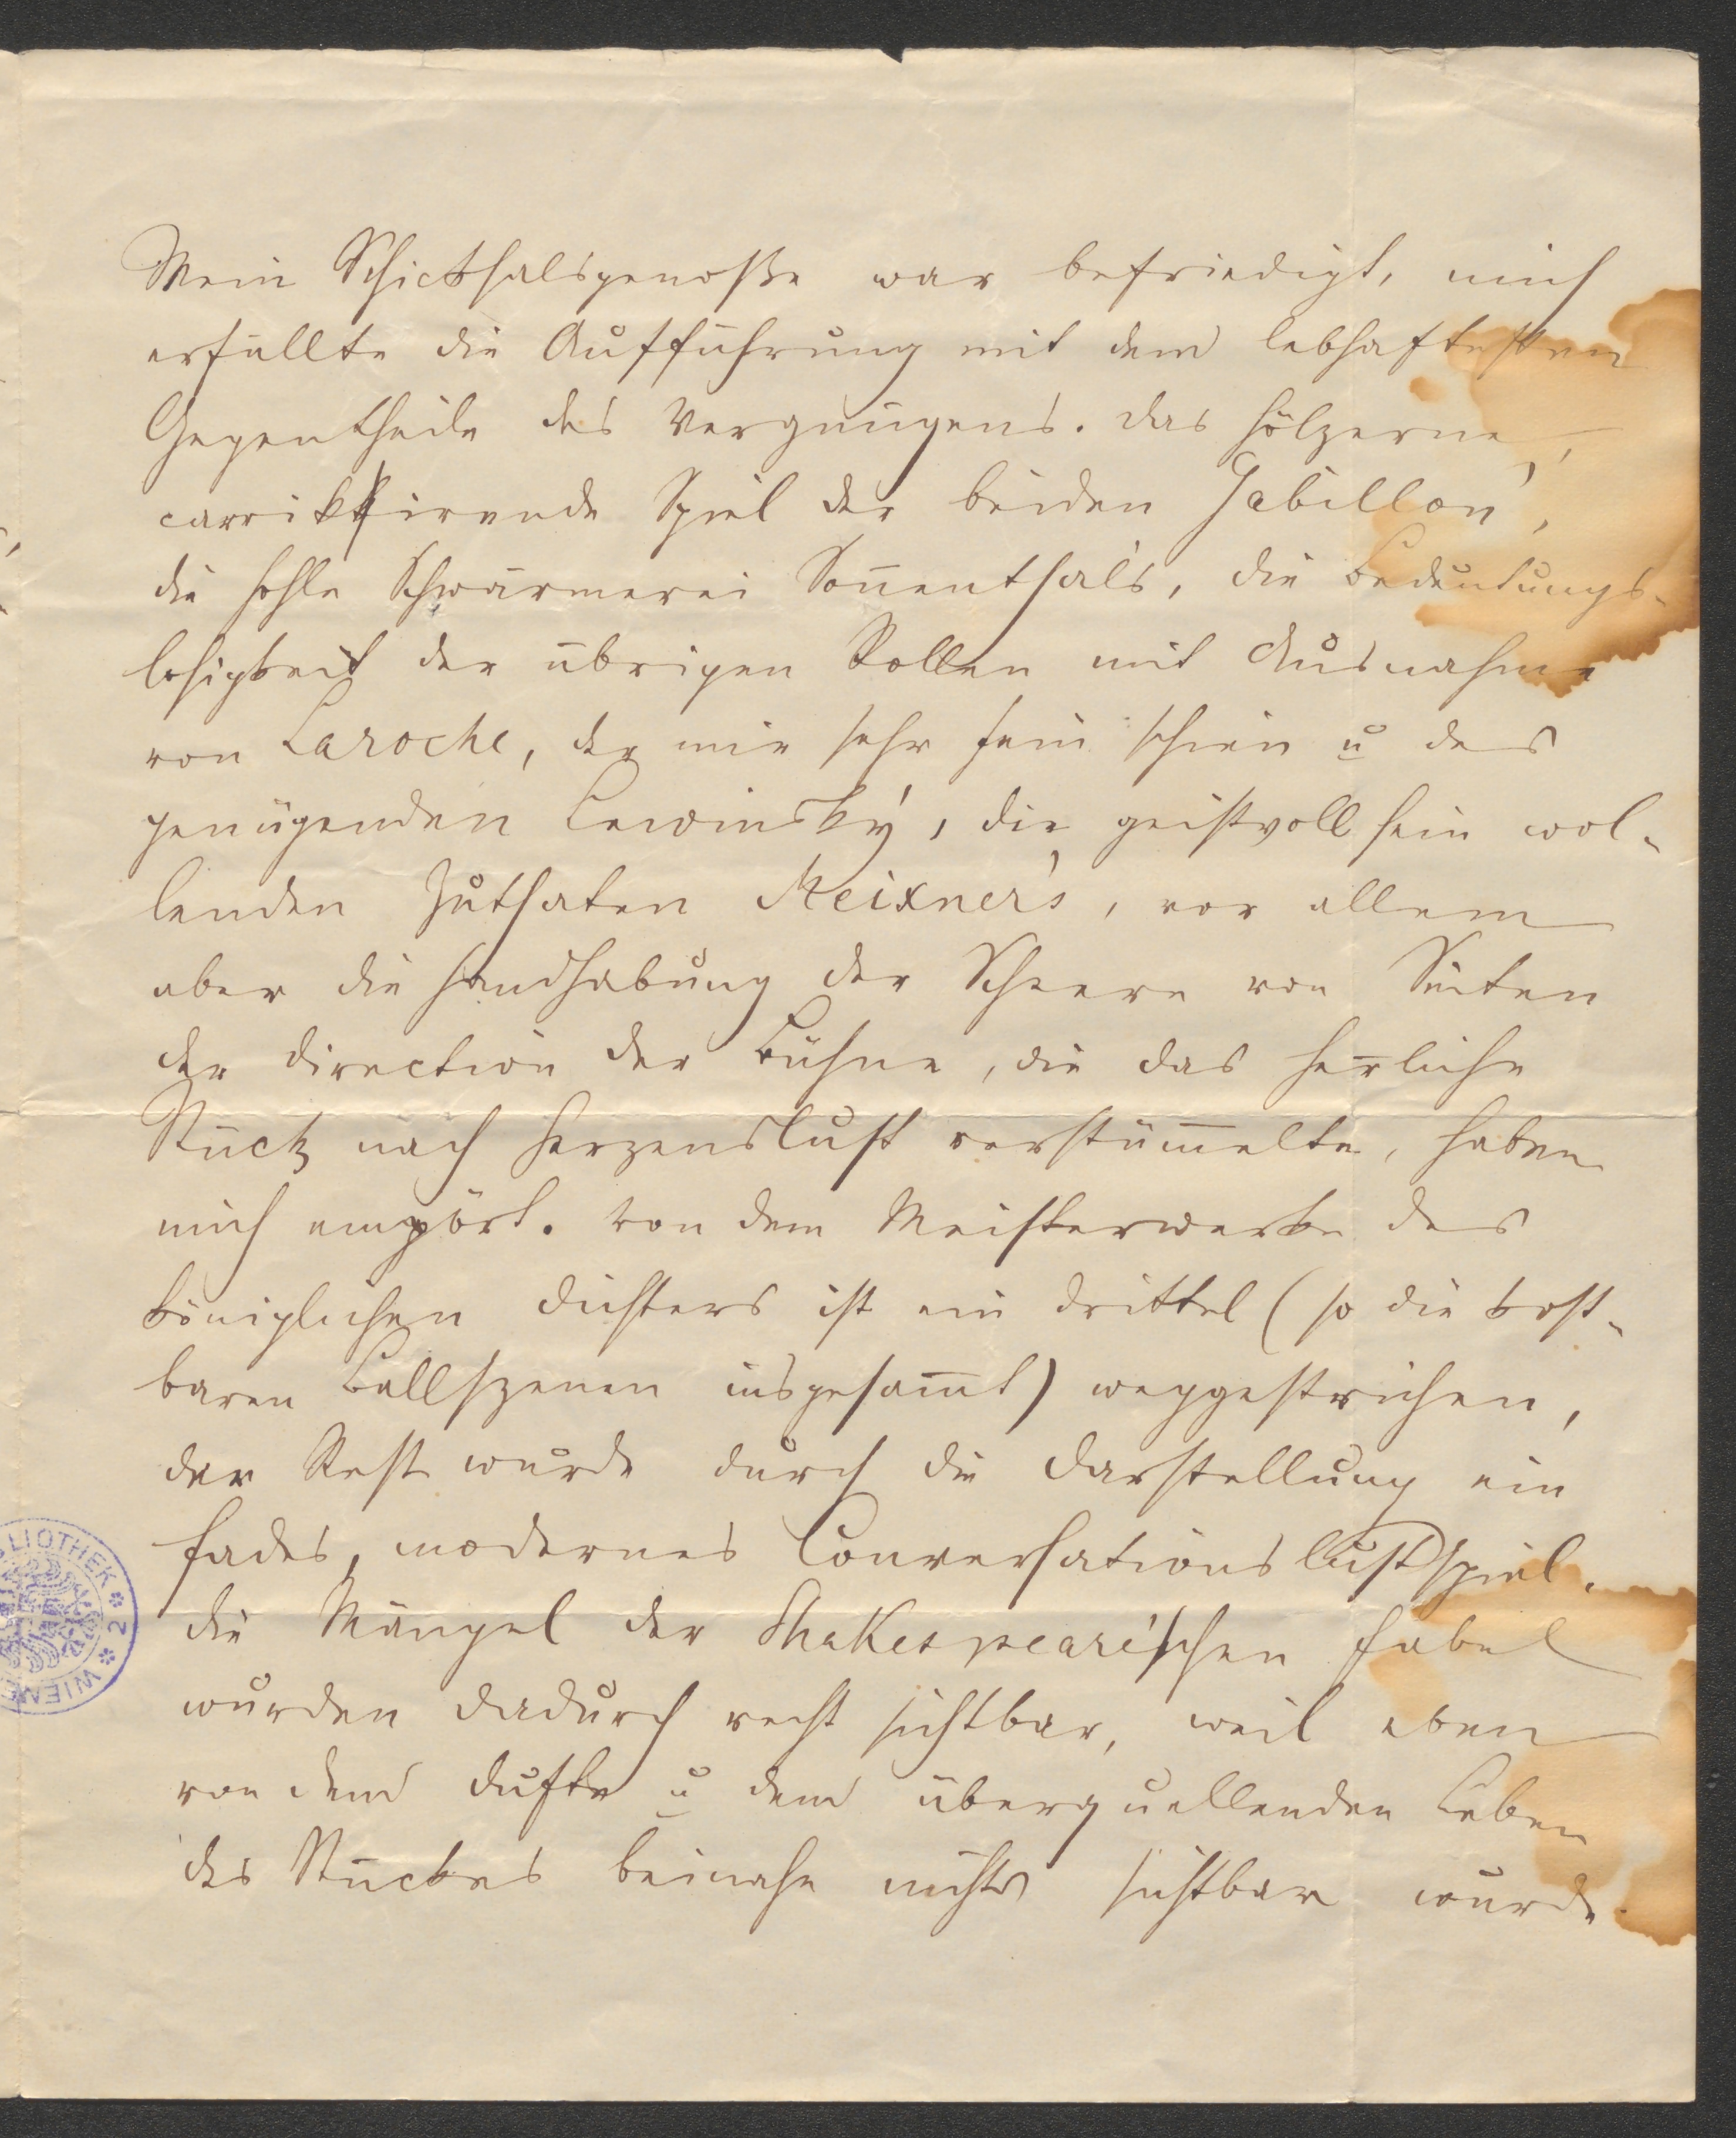 Mein Schicksalsgenoße war befriedigt, mich
erfüllte die Aufführung mit dem lebhaftesten
Gegentheile des Vergnügens. Das hölzerne,
carrikkirende Spiel der beiden Gabillon,
die hohle Schwärmerei Soñenthal's, die Bedeutungs-
losigkeit der übrigen Rollen mit Ausnahme
von Laroche, der mir sehr fein schien u des
genügenden Lewinsky, die geistvoll sein wol-
lenden Zuthaten Meixner's, vor allem
aber die Handhabung der Scheere von Seiten
der Direction der Bühne, die das herliche
Stück nach Herzenslust verstüm̄elte, haben
mich empört. Von dem Meisterwerke des
königlichen Dichters ist ein Drittel (so die kost-
baren Ballszenen insgesam̄t) weggestrichen,
der Rest wurde durch die Darstellung ein
fades, modernes Conversationslustspiel.
die Mängel der Shakespeare'schen Fabel
wurden dadurch recht sichtbar, weil eben
von dem Dufte u dem überquellenden Leben
des Stückes beinahe nichts sichtbar wurde.
BLIOTHEK * 2 * WIENER